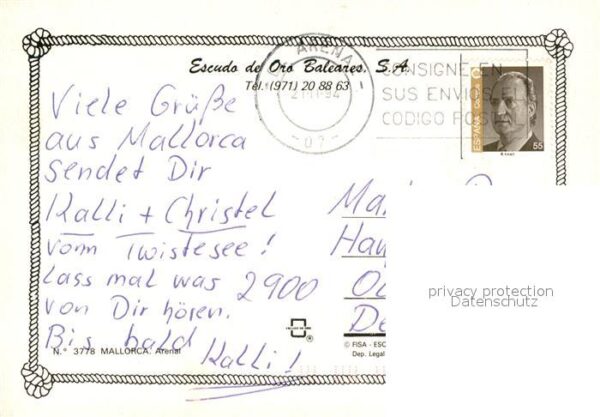 Escudo de Oro Baleares. S.A.
Tel. (971) 20 88 63
ARENAL
21 11 94
-07-
CONSIGNE EN
SUS ENVIOS EL
CODIGO POSTAL
ESPAÑA
55
Viele Grüße
aus Mallorca
sendet Dir
Kalli + Christel
vom Twistesee!
Lass mal was
von Dir hören.
Bis bald
Kalli!
Ha
2900 O
De
privacy protection
Datenschutz
N.° 3778 MALLORCA. Arenal
®
© FISA - ESC
Dep. Legal